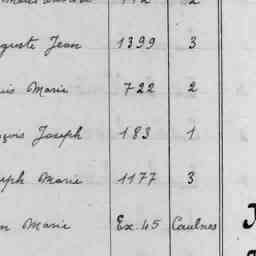 guste Jean 1399 3
uis Marie 722 2
nçois Joseph 183 1
seph Marie 1177 3
n Marie Ex. 45 Caulnes